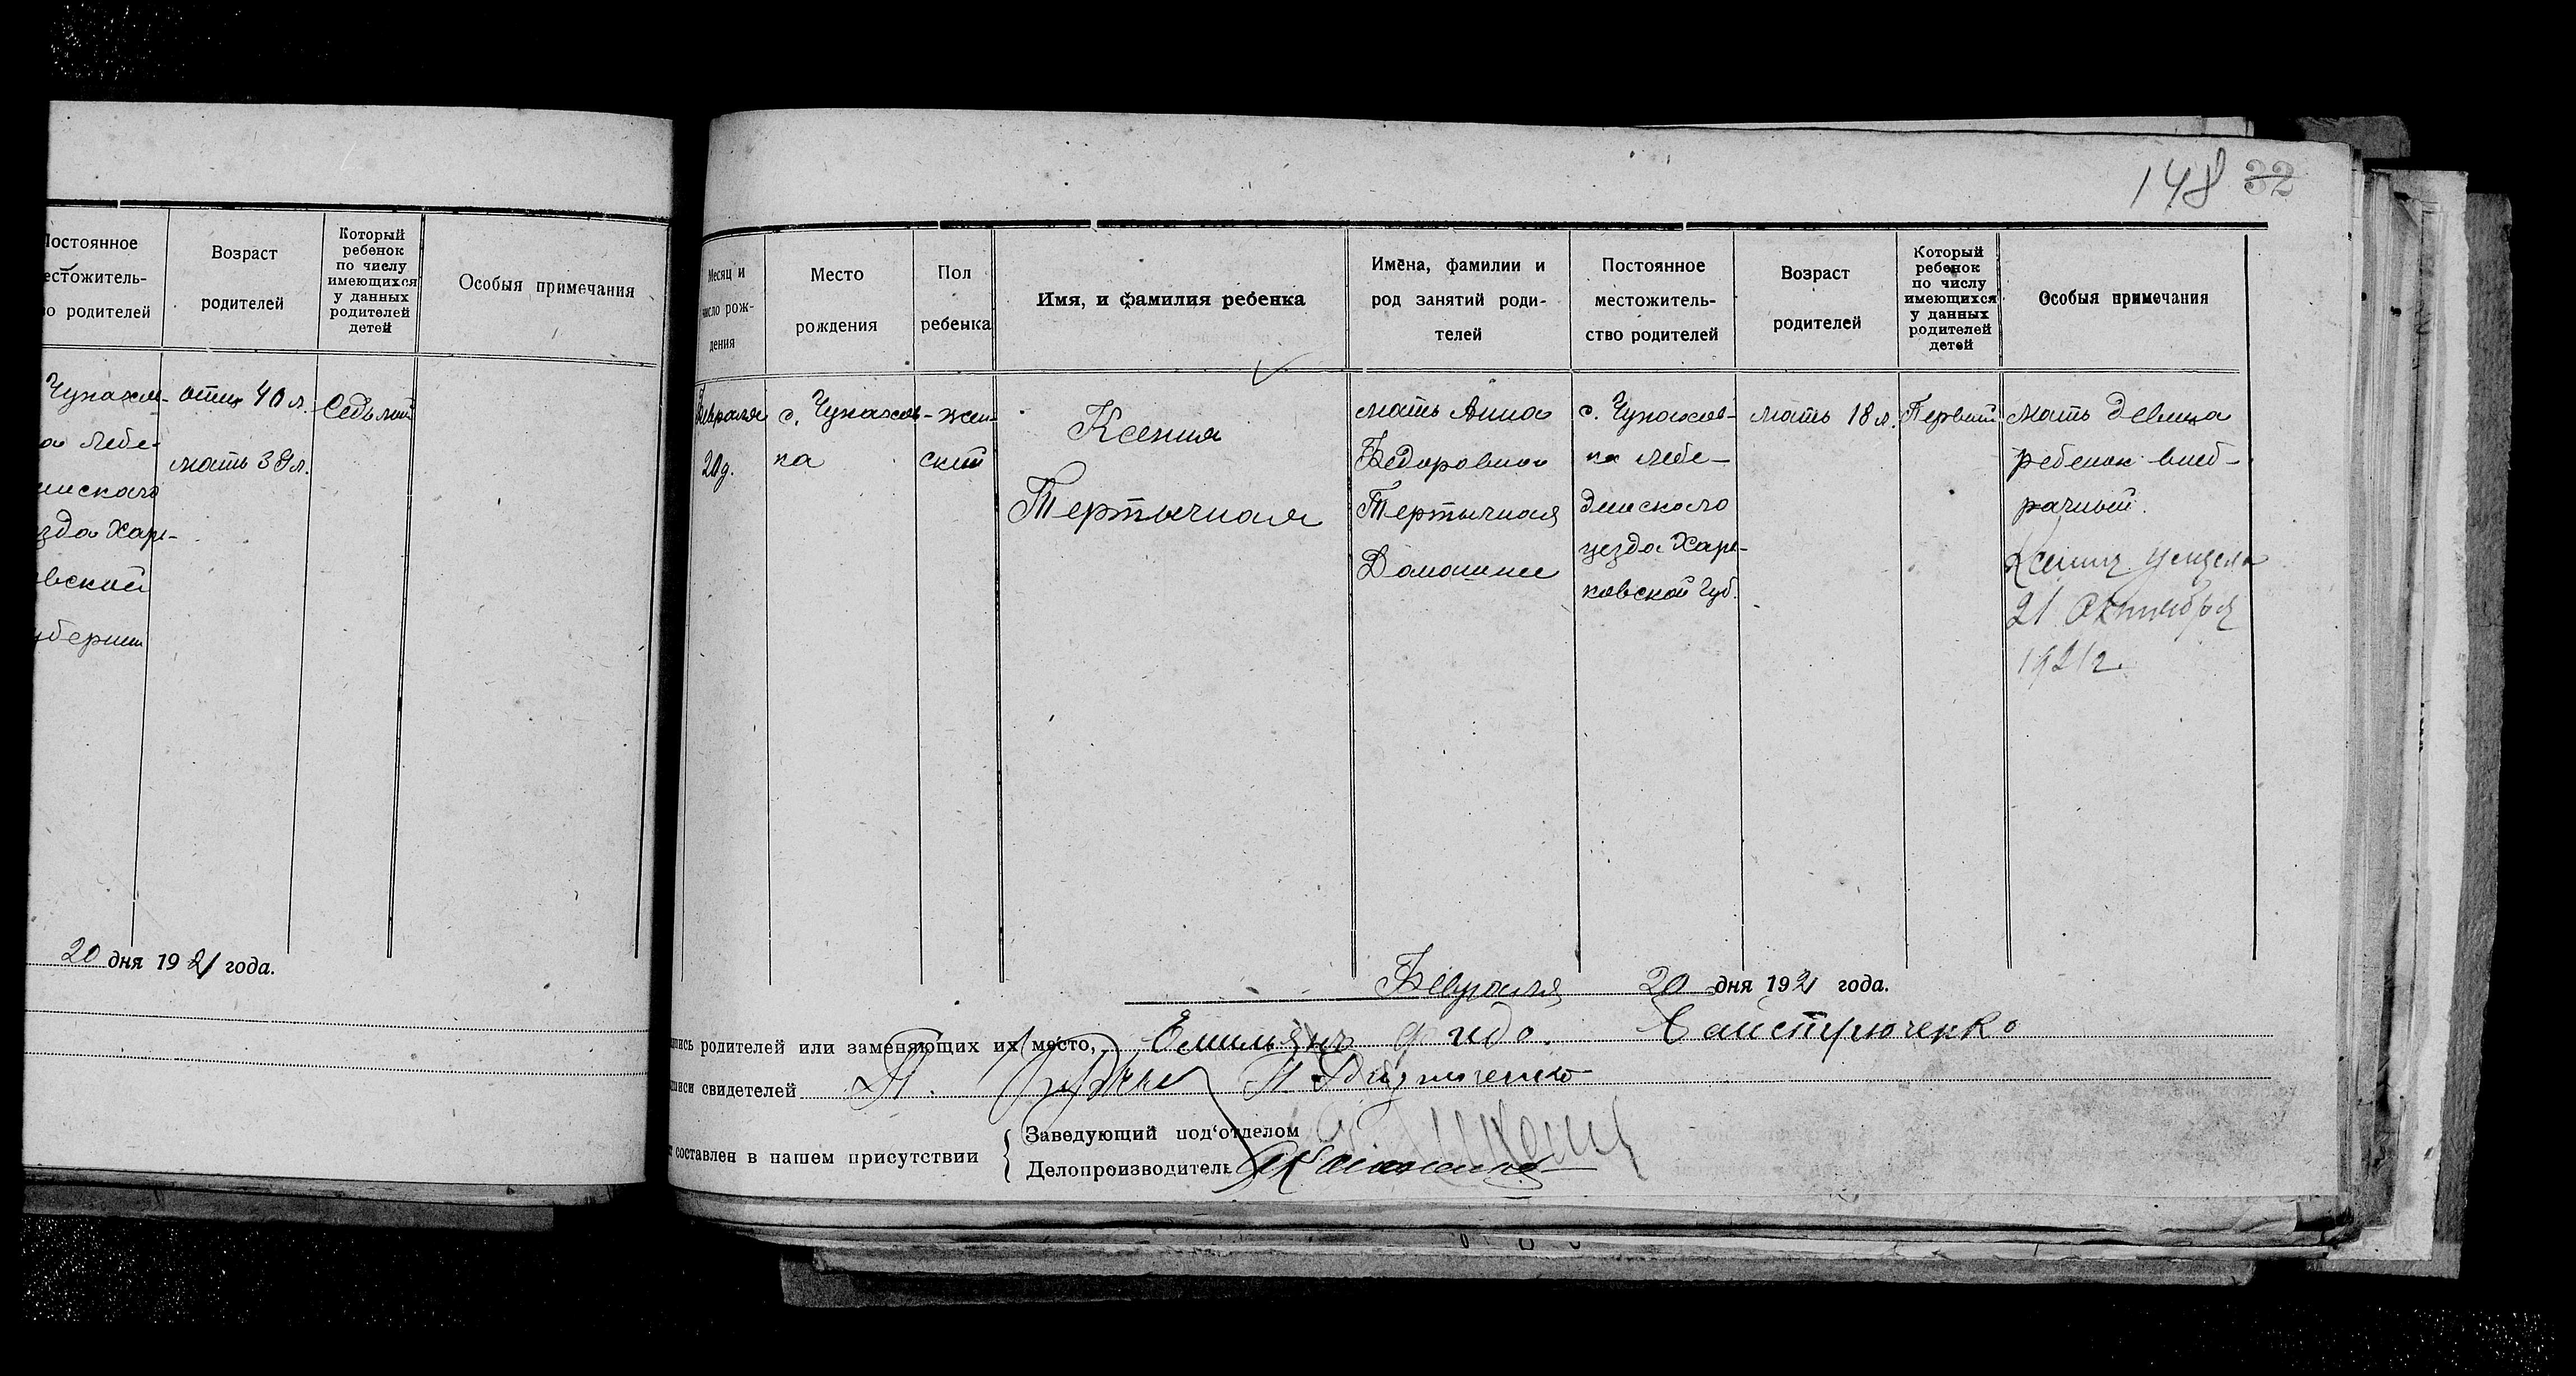 Постоянное
местожитель-
во родителей
Возраст
родителей
Который
ребенок
по числу
имеющихся
у данных
родителей
детей
Особыя примечания
Чупахов-
ка Лебе-
динскаго
уезда Харь-
ковской
губернии
отец 40 л.
мать 38 л.
Седьмой
20 дня 1921 года.
148 32
Месяц и
число рож-
дения
Место
рождения
Пол
ребенка
Имя, и фамилия ребенка
Имена, фамилии и
род занятий роди-
телей
Постоянное
местожитель-
ство родителей
Возраст
родителей
Который
ребенок
по числу
имеющихся
у данных
родителей
детей
Особыя примечания
Февраля
20 д.
с. Чупахов-
ка
жен-
ский
Ксения
Тертычная
мать Анна
Федоровна
Тертычная
Домашнее
с. Чупахов-
ка Лебе-
динскаго
уезда Харь-
ковской губ.
мать 18 л.
Первый
Мать девица
ребенок внеб-
рачный.
Ксения умерла
21 Октября
1921 г.
Февраля 20 дня 1921 года.
пись родителей или заменяющих их место, Емильян
писи свидетелей
составлен в нашем присутствии
Заведующий под'отделом
Делопроизводитель